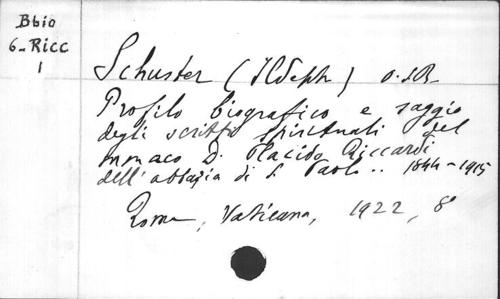 Bbio
6-Ricc
1
Schuster (Ildeph) O.S.B.
Profilo biografico e saggio
degli scritti spirituali del
monaco D. Placido Riccardi
dell'abbazia di S. Paolo .. 1844-1915
Roma, Vaticana, 1922, 8°